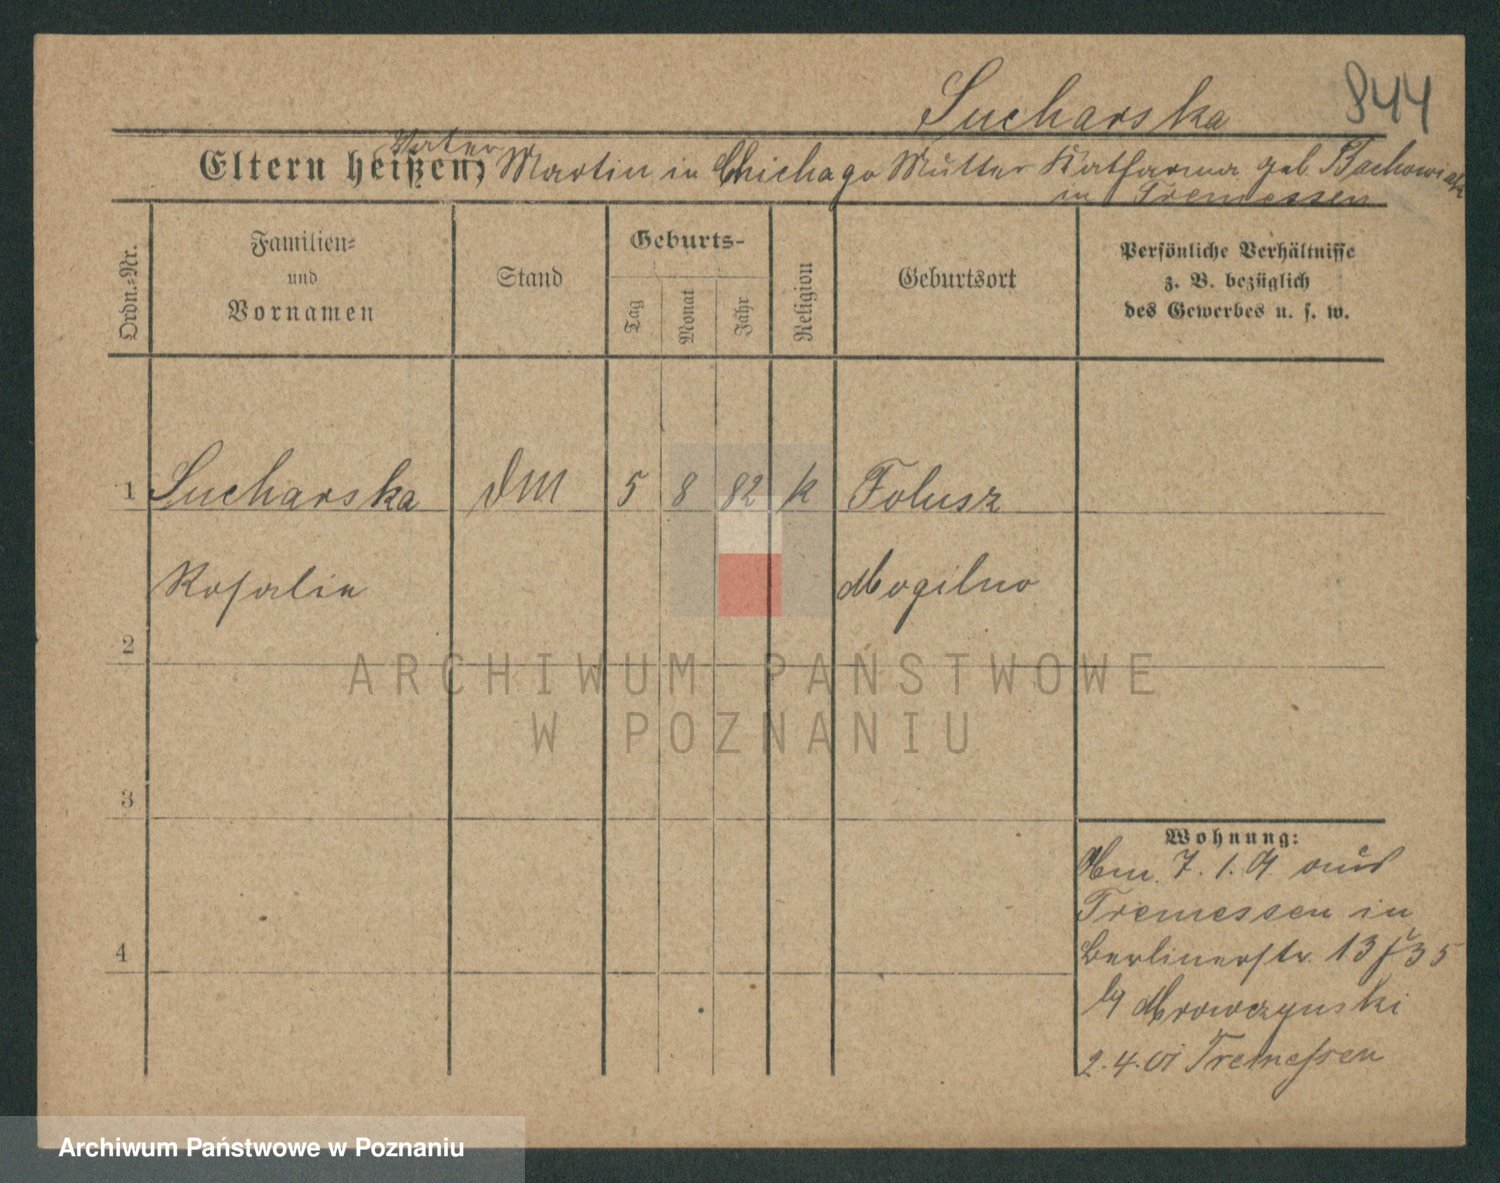 Sucharska 844
Vater
Eltern heißen, Martin in Chichago Mutter Katharina geb. Bachowiak
in Tremessen
Ordn.-Nr.
Familien-
und
Vornamen
Stand
Geburts-
Tag
Monat
Jahr
Religion
Geburtsort
Persönliche Verhältnisse
z. B. bezüglich
des Gewerbes u. s. w.
1 Sucharska DM 5 8 82 k Folusz
Rosalie Mogilno
2
ARCHIWUM PAŃSTWOWE
W POZNANIU
3
Wohnung:
7. 1. 01 aus
Tremessen in
4
Berlinerstr. 13 35
Mrowczynski
2. 4. 01 Tremessen
Archiwum Państwowe w Poznaniu